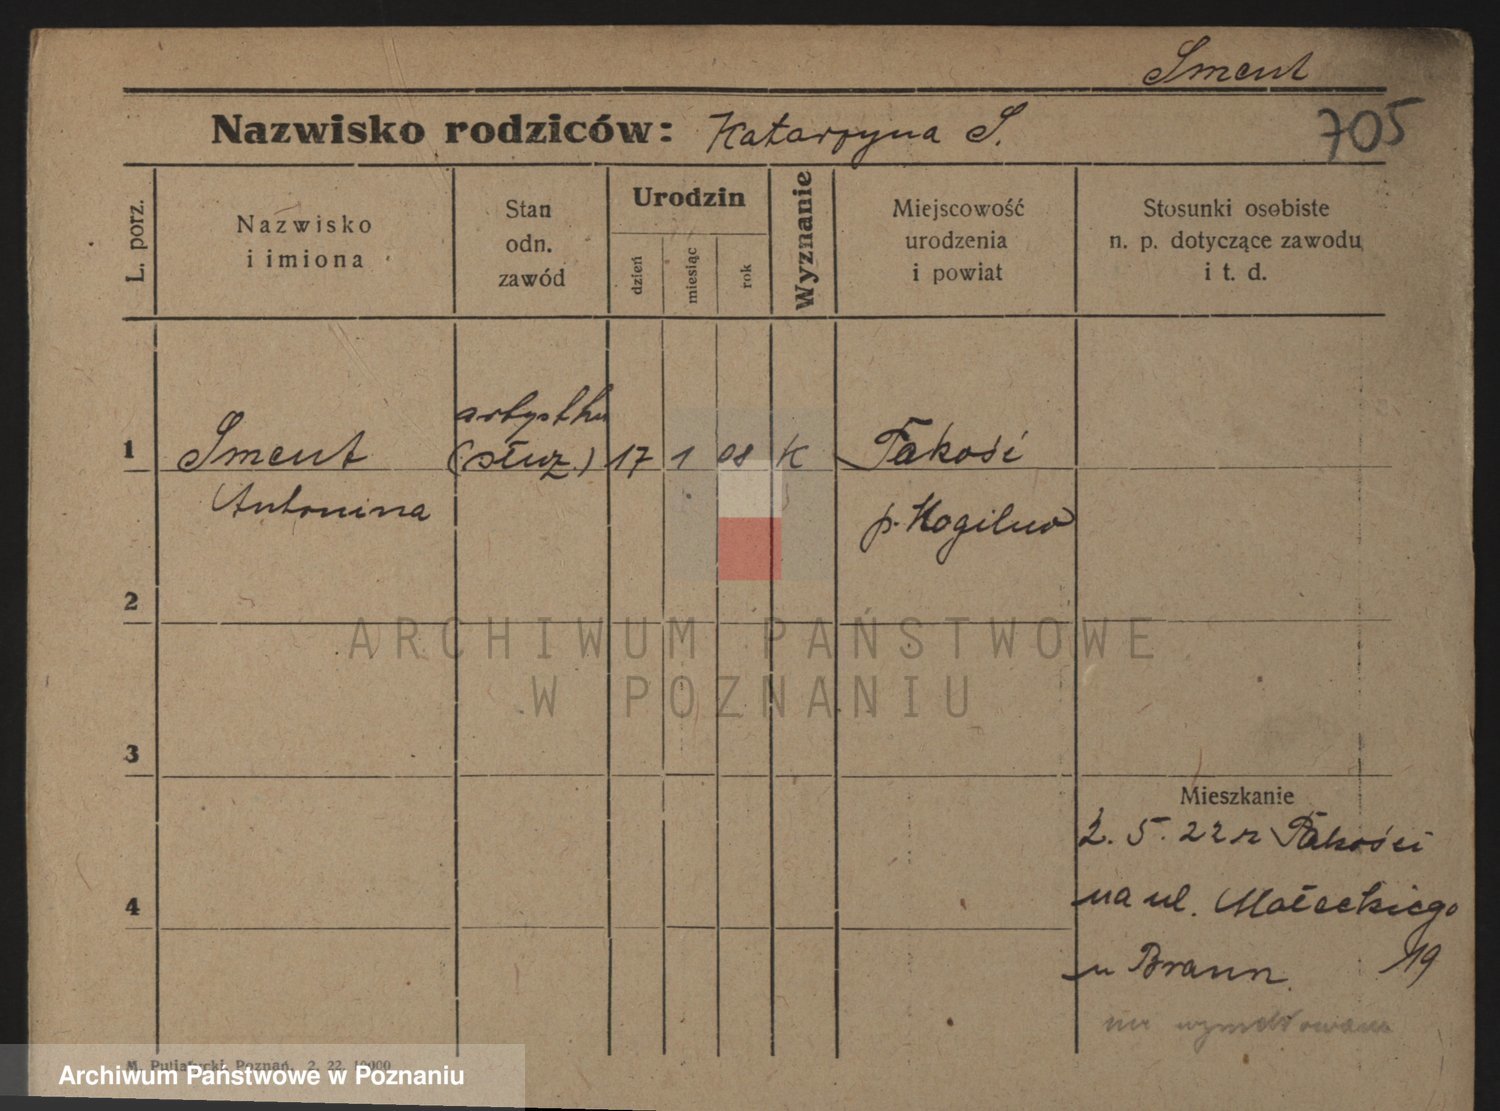 Sment
Nazwisko rodziców: Katarzyna S.
705
L. porz.
Nazwisko
i imiona
Stan
odn.
zawód
Urodzin
dzień
miesiąc
rok
Wyznanie
Miejscowość
urodzenia
i powiat
Stosunki osobiste
n. p. dotyczące zawodu
i t. d.
artystka
1 Sment (służ.) 17 1 08 K Pakość
Antonina p. Mogilno
2
ARCHIWUM PAŃSTWOWE
W POZNANIU
3
Mieszkanie
2. 5. 22 z Pakości
4
na ul. Małeckiego
u Braun 19
nie
M. Putiatycki, Poznań, 2. 22.
Archiwum Państwowe w Poznaniu